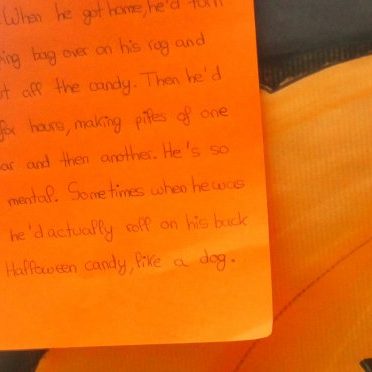 When he got home, he'd turn
bag over on his rug and
off the candy. Then he'd
for hours, making piles of one
and then another. He's so
mental. Sometimes when he was
he'd actually roll on his back
Halloween candy, like a dog.